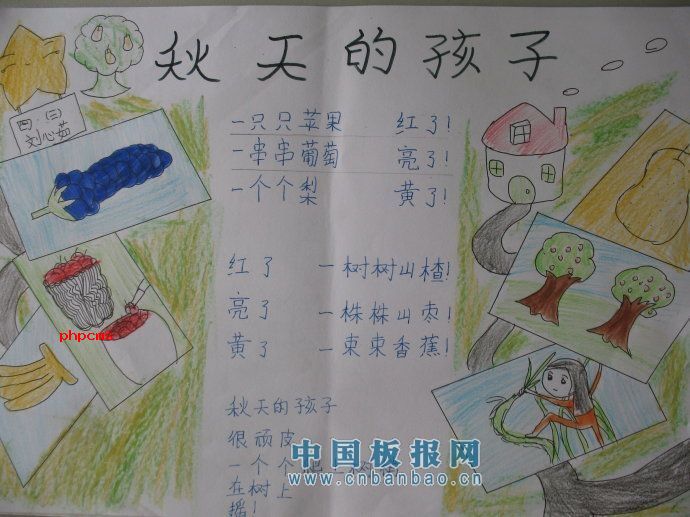 秋天的孩子
四（三）
刘心茹
一只只苹果 红了！
一串串葡萄 亮了！
一个个梨 黄了！
红了 一树树山楂！
亮了 一株株山枣！
黄了 一束束香蕉！
秋天的孩子
很顽皮
一个个
在树上
摇！
phpcmz
中国板报网
www.cnbanbao.cn